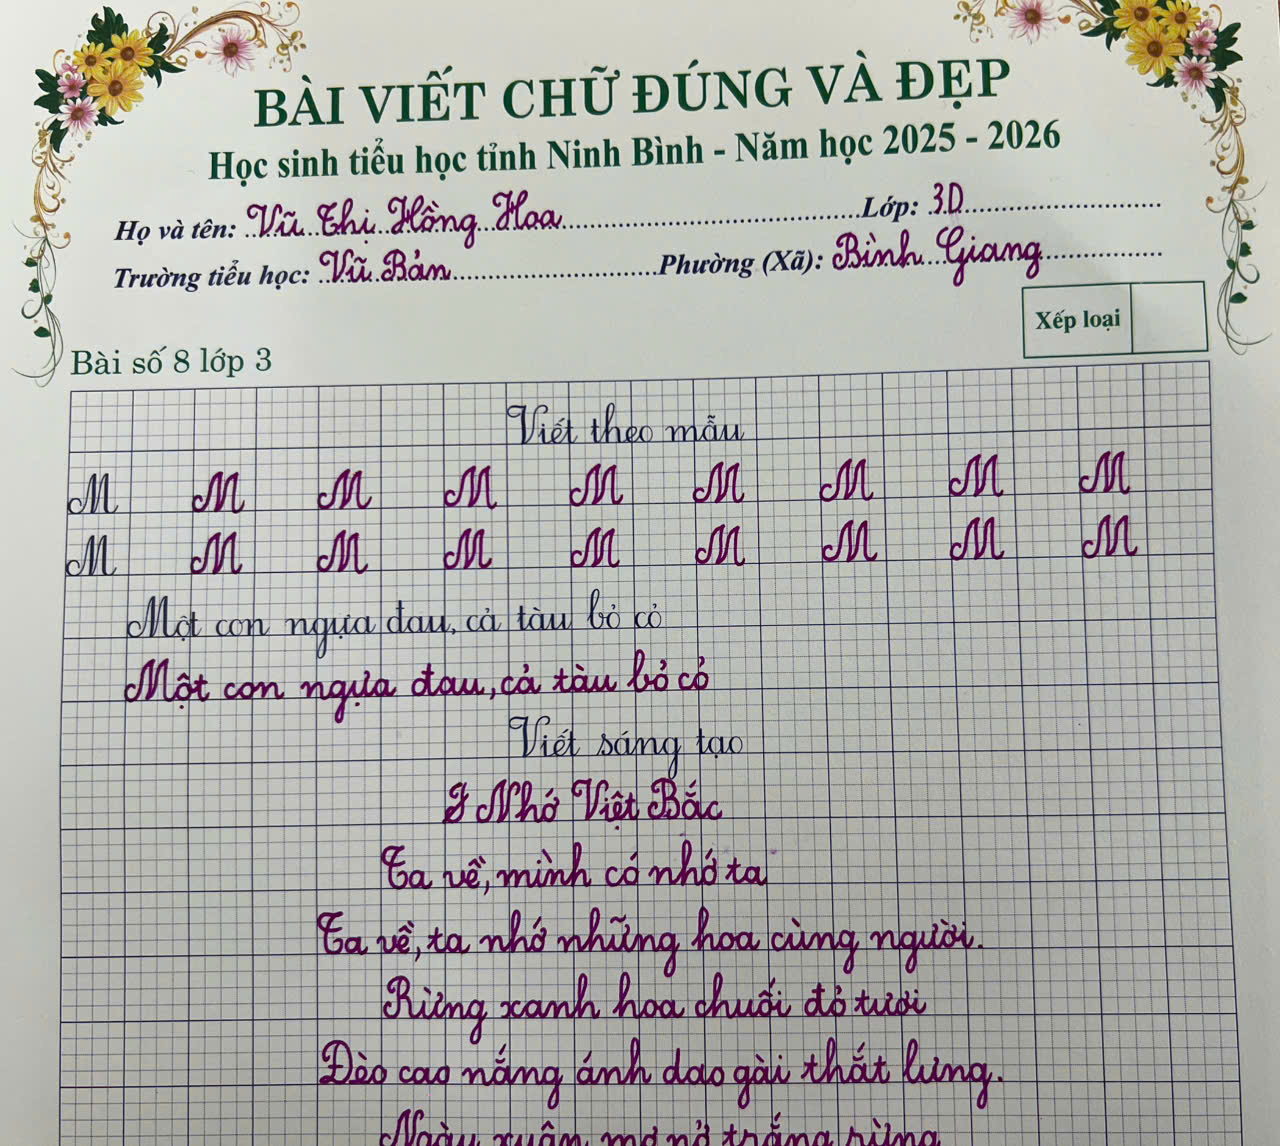 BÀI VIẾT CHỮ ĐÚNG VÀ ĐẸP
Học sinh tiểu học tỉnh Ninh Bình - Năm học 2025 - 2026
Họ và tên: Vũ Thị Hồng Hoa Lớp: 3D
Trường tiểu học: Vũ Bản Phường (Xã): Bình Giang
Xếp loại
Bài số 8 lớp 3
Viết theo mẫu
M M M M M M M M M
M M M M M M M M M
Một con ngựa đau, cả tàu bỏ cỏ
Một con ngựa đau, cả tàu bỏ cỏ
Viết sáng tạo
Nhớ Việt Bắc
Ta về, mình có nhớ ta
Ta về, ta nhớ những hoa cùng người.
Rừng xanh hoa chuối đỏ tươi
Đèo cao nắng ánh dao gài thắt lưng.
Ngày xuân mơ nở trắng rừng